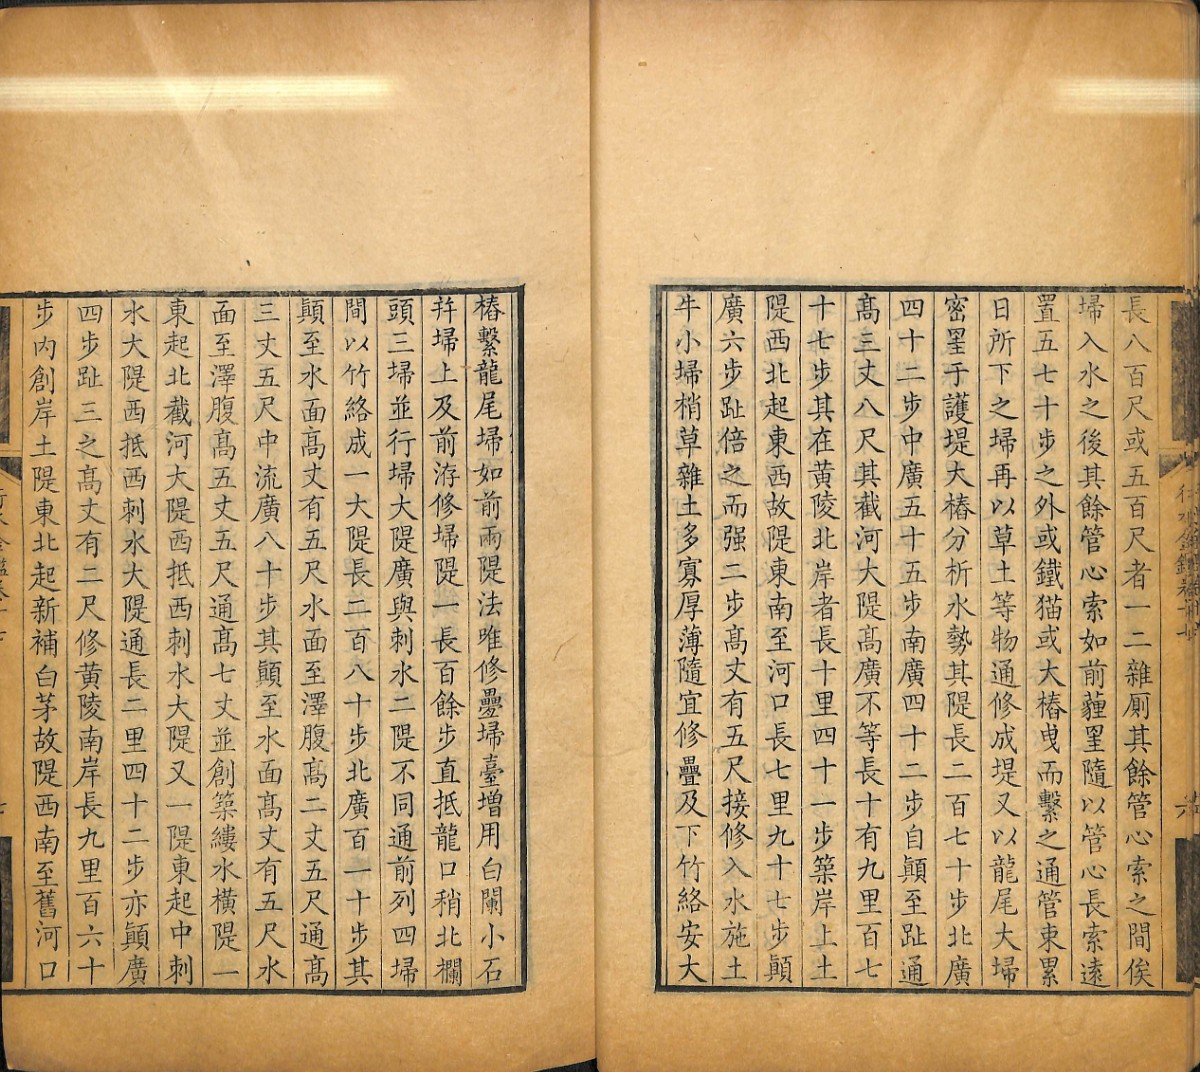 長八百尺或五百尺者一二雜厠其餘管心索之間俟
埽入水之後其餘管心索如前薶罣隨以管心長索遠
置五七十步之外或鐵猫或大樁曳而繫之通管束累
日所下之埽再以草土等物通修成堤又以龍尾大埽
密罣于護堤大樁分析水勢其隄長二百七十步北廣
四十二步中廣五十五步南廣四十二步自顛至趾通
高三丈八尺其截河大隄高廣不等長十有九里百七
十七步其在黄陵北岸者長十里四十一步築岸上土
隄西北起東西故隄東南至河口長七里九十七步顛
廣六步趾倍之而强二步高丈有五尺接修入水施土
牛小埽梢草雜土多寡厚薄隨宜修疊及下竹絡安大
樁繫龍尾埽如前兩隄法唯修疊埽臺增用白闌小石
并埽上及前洊修埽隄一長百餘步直抵龍口稍北欄
頭三埽並行埽大隄廣與刺水二隄不同通前列四埽
間以竹絡成一大隄長二百八十步北廣百一十步其
顛至水面高丈有五尺水面至澤腹高二丈五尺通高
三丈五尺中流廣八十步其顛至水面高丈有五尺水
面至澤腹高五丈五尺通高七丈並創築縷水橫隄一
東起北截河大隄西抵西刺水大隄又一隄東起中刺
水大隄西抵西刺水大隄通長二里四十二步亦顛廣
四步趾三之高丈有二尺修黄陵南岸長九里百六十
步内創岸土隄東北起新補白茅故隄西南至舊河口